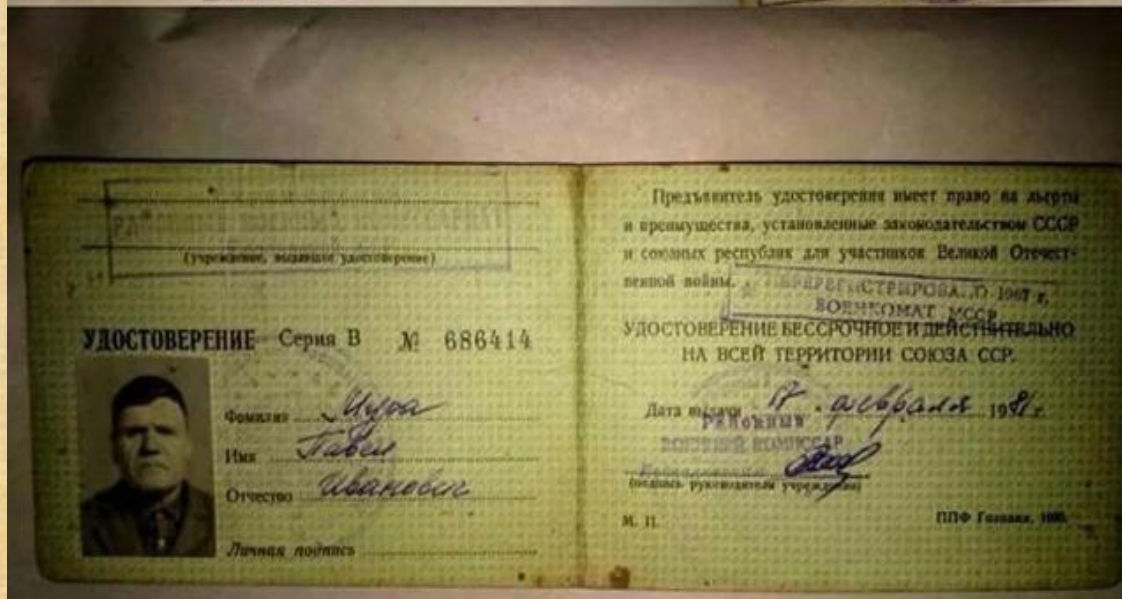 (учреждение, выдавшее удостоверение)
УДОСТОВЕРЕНИЕ Серия В № 686414
Фамилия
Имя Павел
Отчество Иванович
Личная подпись
Предъявитель удостоверения имеет право на льготы
и преимущества, установленные законодательством СССР
и союзных республик для участников Великой Отечест-
венной войны.
ПЕРЕРЕГИСТРИРОВАНО 1987 г,
ВОЕНКОМАТ МССР
УДОСТОВЕРЕНИЕ БЕССРОЧНОЕ И ДЕЙСТВИТЕЛЬНО
НА ВСЕЙ ТЕРРИТОРИИ СОЮЗА ССР.
Дата выдачи 17 февраля 1981 г.
РАЙОННЫЙ
ВОЕННЫЙ КОМИССАР
(подпись руководителя учреждения)
М. П.
ППФ Гознака, 1980.